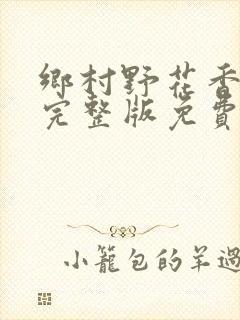 鄉村野花香
完整版免費
小籠包的羊過